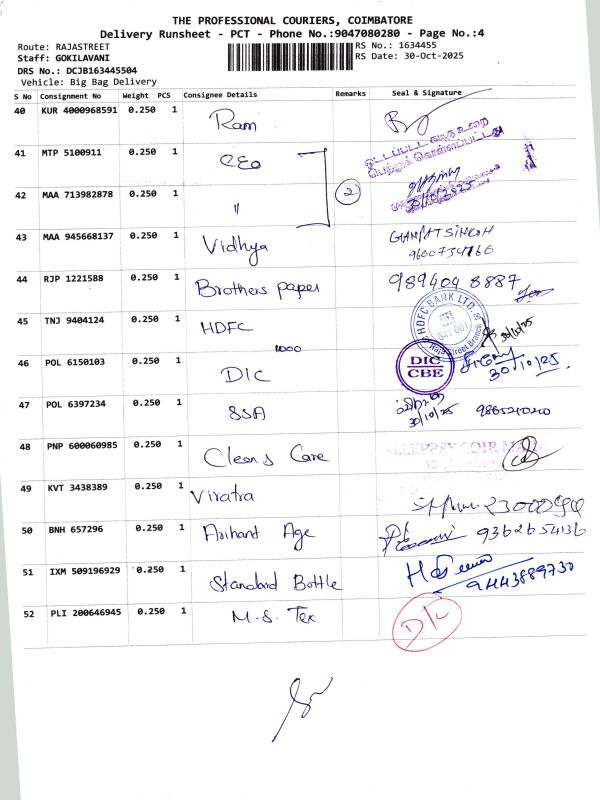 THE PROFESSIONAL COURIERS, COIMBATORE
Delivery Runsheet - PCT - Phone No.:9047080280 - Page No.:4
Route: RAJASTREET
RS No.: 1634455
Staff: GOKILAVANI
RS Date: 30-Oct-2025
DRS No.: DCJB163445504
Vehicle: Big Bag Delivery
S No Consignment No Weight PCS Consignee Details Remarks Seal & Signature
40 KUR 4000968591 0.250 1 Ram
41 MTP 5100911 0.250 1 CEO
42 MAA 713982878 0.250 1 " 2 30/10/2025
43 MAA 945668137 0.250 1 Vidhya GANPAT SINGH
9600734766
44 RJP 1221588 0.250 1 Brothers paper 989404 8887
45 TNJ 9404124 0.250 1 HDFC HDFC BANK LTD. 641 001 Raja Street Branch 30/10/25
1000
46 POL 6150103 0.250 1 DIC DIC CBE 30/10/25
47 POL 6397234 0.250 1 SSA 30/10/25
48 PNP 600060985 0.250 1 Cleans Care
49 KVT 3438389 0.250 1 Viratra
50 BNH 657296 0.250 1 Arihant Age 9362654136
51 IXM 509196929 0.250 1 Standard Bottle 9443889730
52 PLI 200646945 0.250 1 M.S. Tex D/L